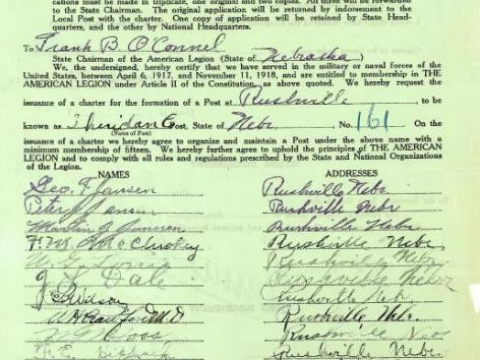 cations must be made in triplicate, one original and two copies. All three will be forwarded
to the State Chairman. The original application will be returned by indorsement to the
Local Post with the charter. One copy of application will be retained by State Head-
quarters, and the other by National Headquarters.
To Frank B. O'Connel
State Chairman of the American Legion (State of Nebraska)
We, the undersigned, hereby certify that we have served in the military or naval forces of the
United States, between April 6, 1917, and November 11, 1918, and are entitled to membership in THE
AMERICAN LEGION under Article II of the Constitution, as above quoted. We hereby request the
issuance of a charter for the formation of a Post at Rushville to be
known as Sheridan Post, State of Nebr No. 161 On the
(Name of Post)
issuance of a charter we hereby agree to organize and maintain a Post under the above name with a
minimum membership of fifteen. We hereby further agree to uphold the principles of THE AMERICAN
LEGION and to comply with all rules and regulations prescribed by the State and National Organizations
of the Legion.
NAMES ADDRESSES
Geo. F. Jansen Rushville Nebr.
Peter Rushville Nebr
Rushville Nebr
Rushville Nebr
Rushville Nebr
Dale Rushville Nebr
Wilson Rushville Neb
Rushville Nebr.
Rushville
Rushville Nebr